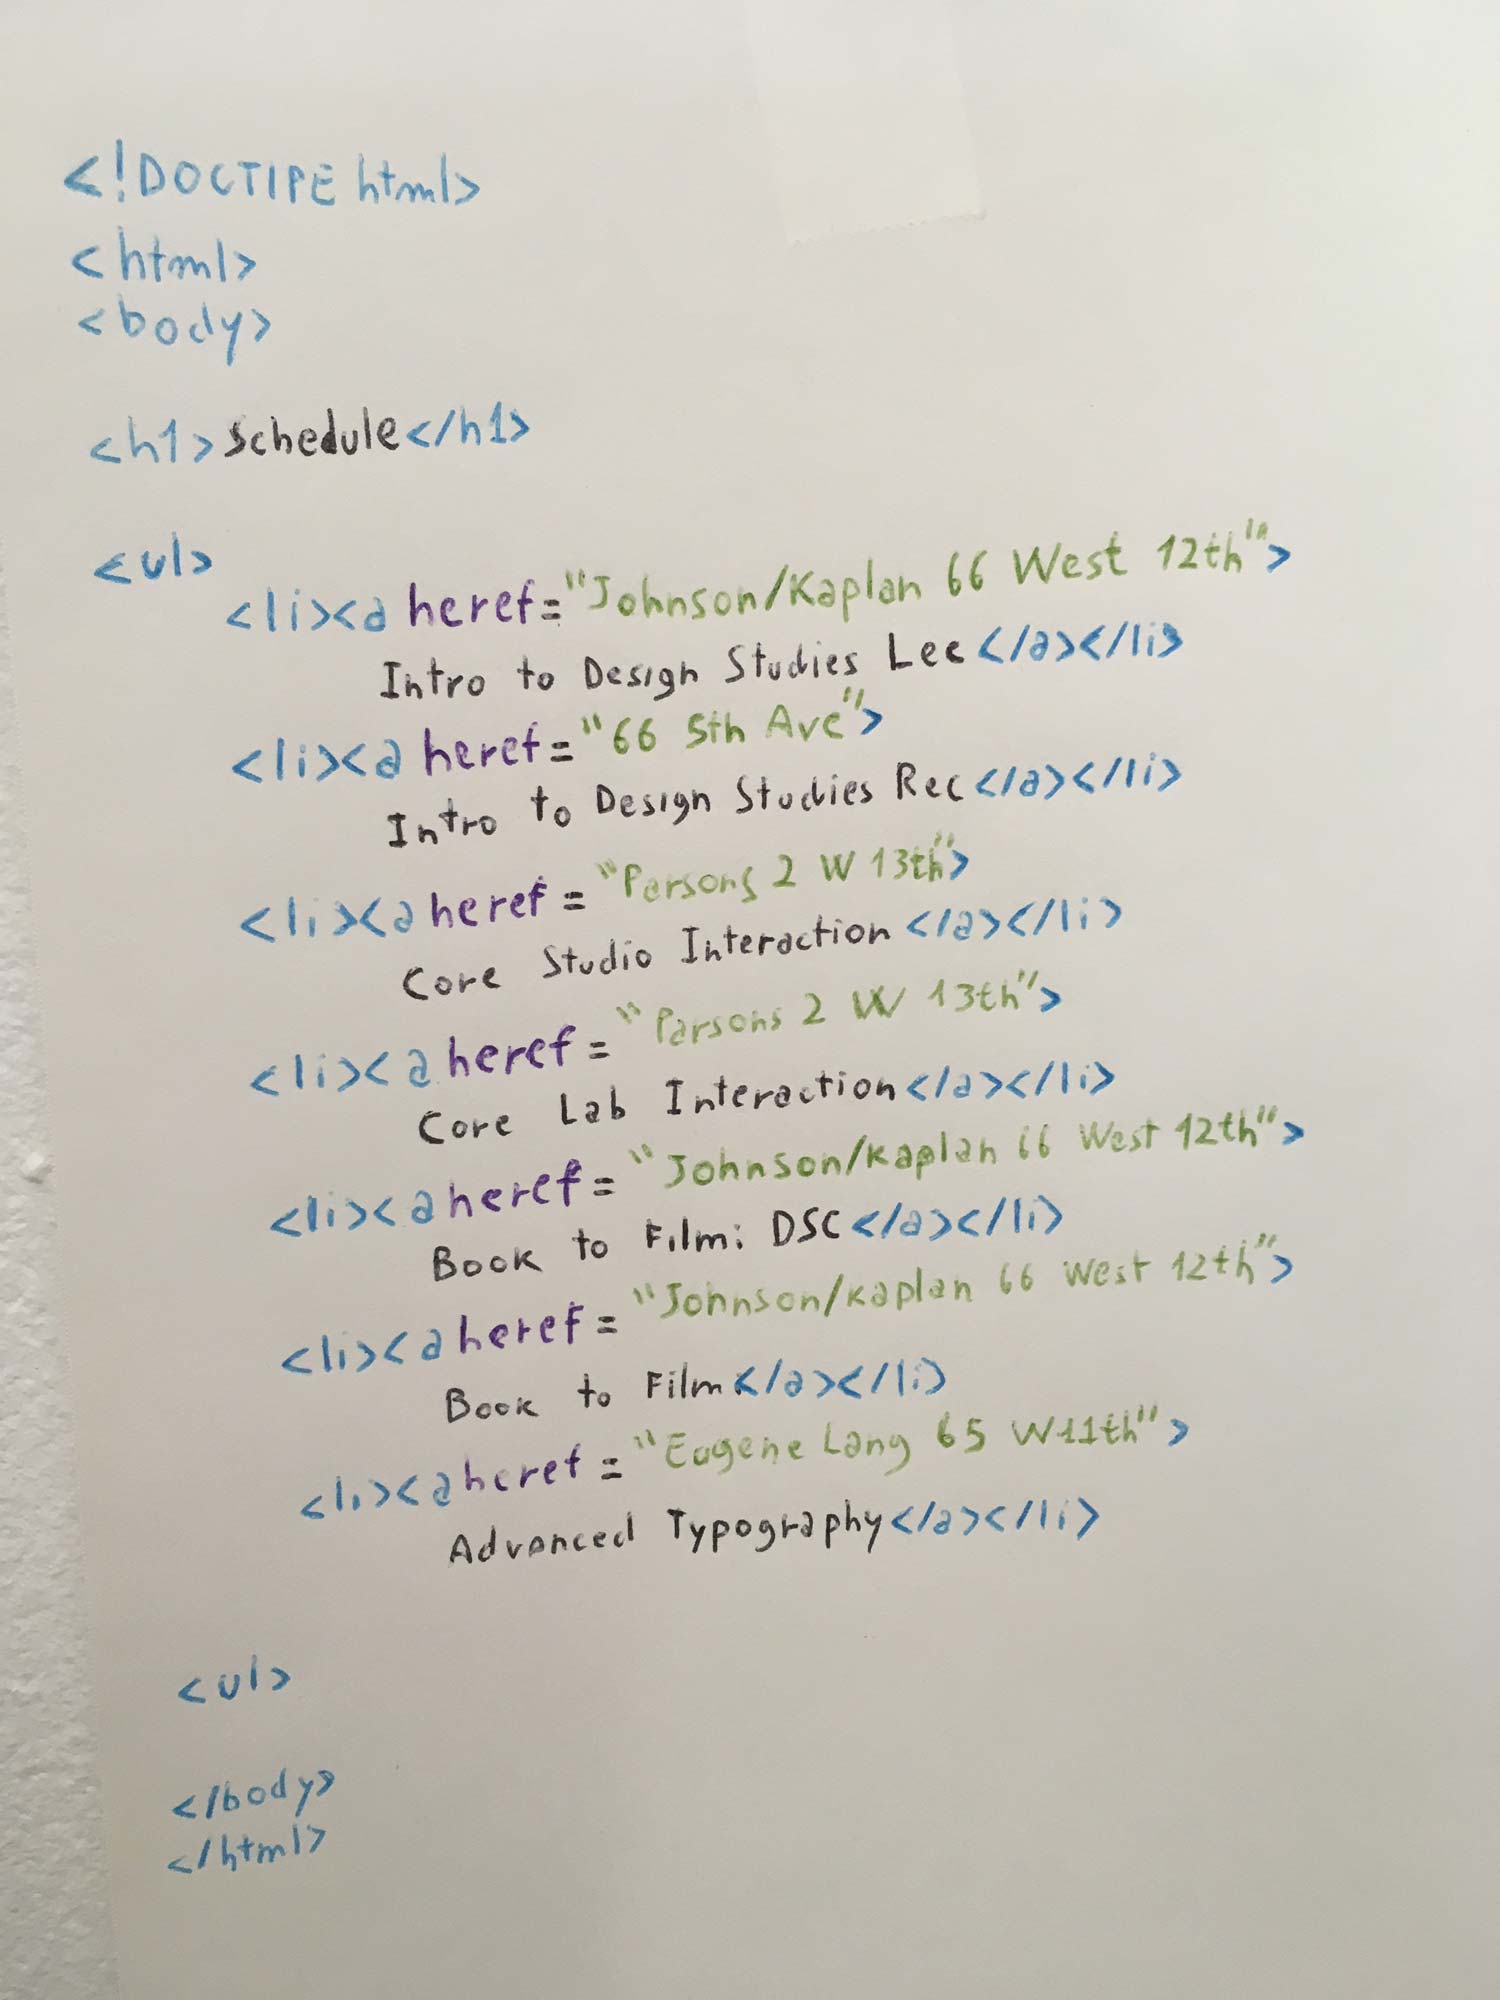 <!DOCTIPE html>
<html>
<body>
<h1>Schedule</h1>
<ul>
<li><a heref="Johnson/Kaplan 66 West 12th">
Intro to Design Studies Lec</a></li>
<li><a heref="66 5th Ave">
Intro to Design Studies Rec</a></li>
<li><a heref="Parsons 2 W 13th">
Core Studio Interaction</a></li>
<li><a heref="Parsons 2 W 13th">
Core Lab Interaction</a></li>
<li><a heref="Johnson/Kaplan 66 West 12th">
Book to Film: DSC</a></li>
<li><a heref="Johnson/Kaplan 66 West 12th">
Book to Film</a></li>
<li><a heref="Eugene Lang 65 W11th">
Advanced Typography</a></li>
<ul>
</body>
</html>